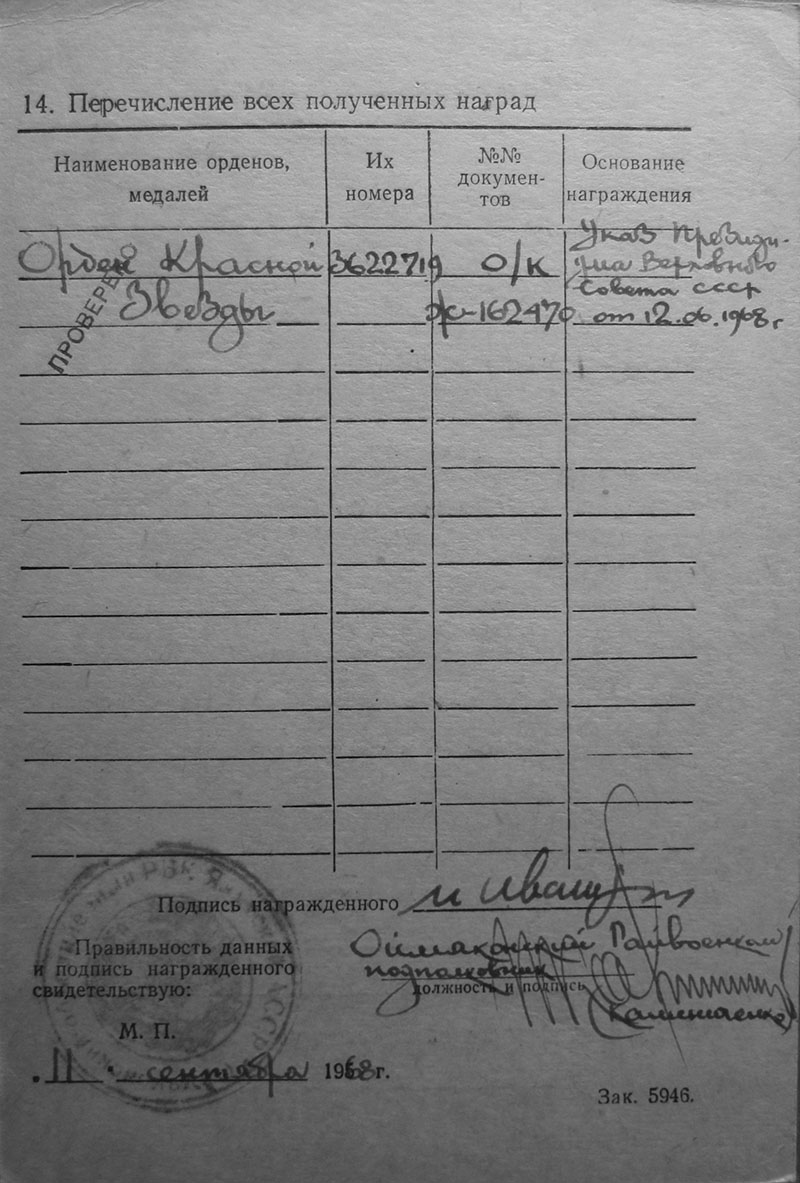 14. Перечисление всех полученных наград
Наименование орденов, медалей
Их номера
№№ докумен-тов
Основание награждения
Орден Красной
Звезды
3622719
О/К
Ж-162470
Указ Президи-
ума Верховного
Совета СССР
от 12.06.1968 г
ПРОВЕРЕН
Подпись награжденного
Правильность данных
и подпись награжденного
свидетельствую:
Оймяконский Райвоенком
подполковник
должность и подпись
М. П.
"11" сентября 1968 г.
Зак. 5946.